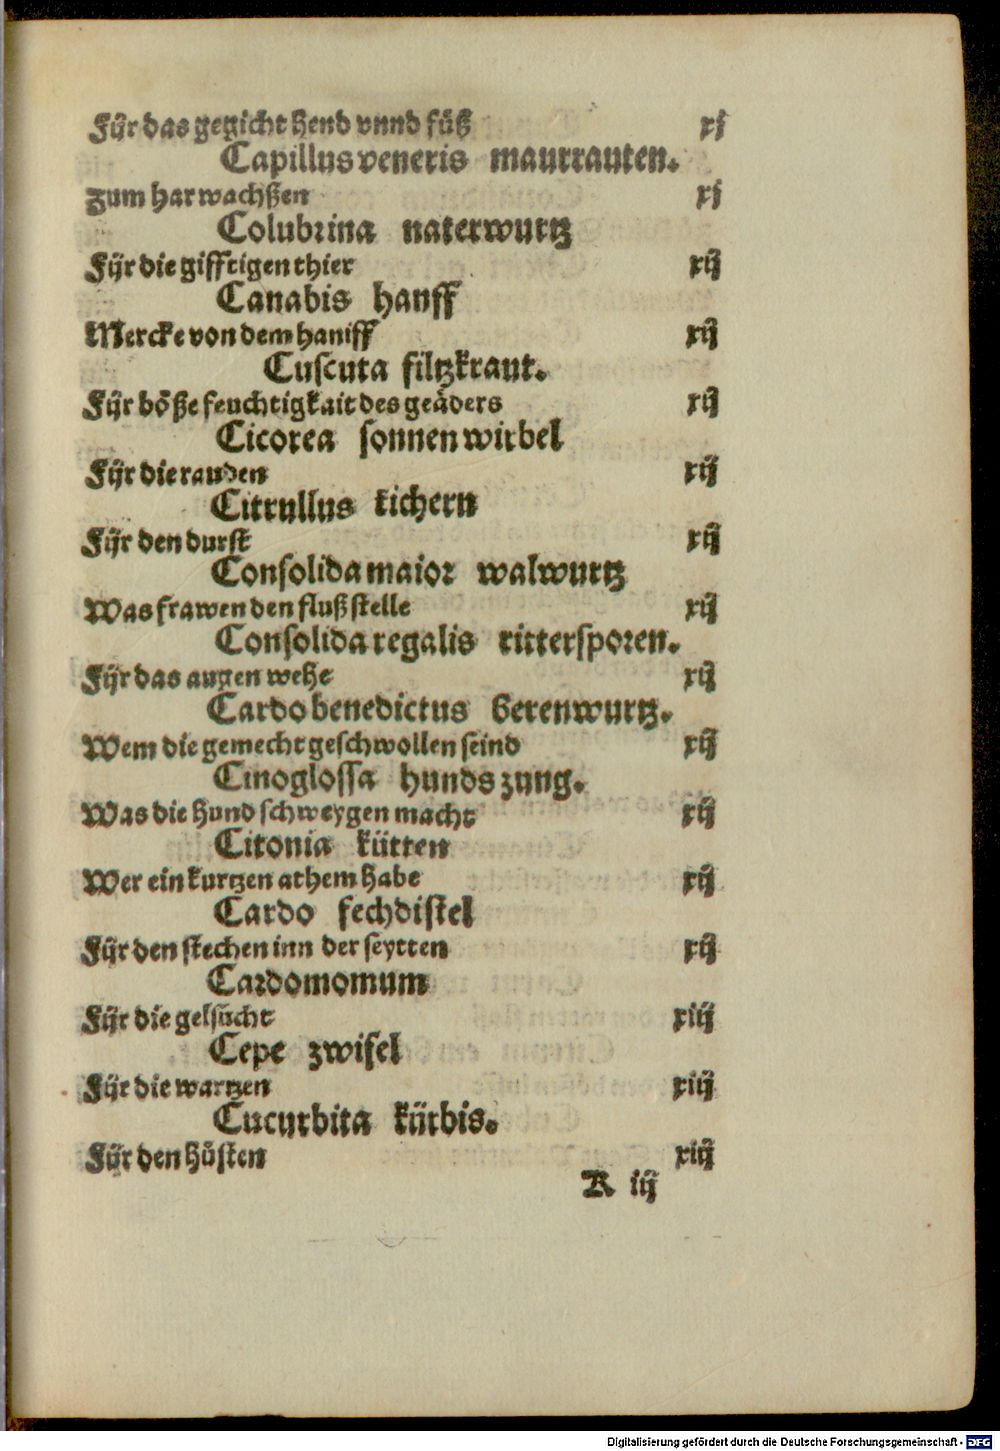 Für das gegicht hend vnnd füß xj
Capillus veneris maurrauten.
Zum har wachßen xj
Colubrina naterwurtz
Für die gifftigen thier xij
Canabis hanff
Mercke von dem haniff xij
Cuscuta filtzkraut.
Für böße feuchtigkait des geäders xij
Cicorea sonnen wirbel
Für die rauden xij
Citrullus kichern
Für den durst xij
Consolida maior walwurtz
Was frawen den fluß stelle xij
Consolida regalis rittersporen.
Für das augen wehe xij
Cardo benedictus berenwurtz.
Wem die gemecht geschwollen seind xij
Cinoglossa hunds zung.
Was die hund schweygen macht xij
Citonia kütten
Wer ein kurtzen athem habe xij
Cardo fechdistel
Für den stechen inn der seytten xij
Cardomomum
Für die gelsücht xiij
Cepe zwisel
Für die wartzen xiij
Cucurbita kürbis.
Für den hůsten xiij
A iij
Digitalisierung gefördert durch die Deutsche Forschungsgemeinschaft - DFG